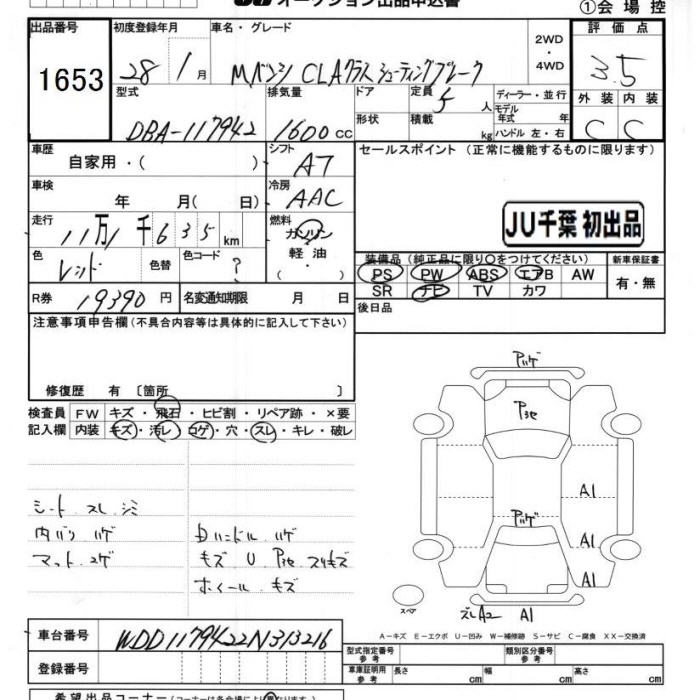 オークション出品申込書
①会場控
出品番号
1653
初度登録年月
28年 1月
車名・グレード
M.ベンツ CLAクラス シューティングブレーク
2WD
・
4WD
評価点
3.5
外装 内装
C C
型式
DBA-117942
排気量
1600cc
ドア
形状
定員
5人
積載
kg
ディーラー・並行
モデル
年式 年
ハンドル 左・右
車歴
自家用・( )
シフト
AT
セールスポイント (正常に機能するものに限ります)
車検
年 月( 日)
冷房
AAC
JU千葉 初出品
走行
11万1千635km
燃料
ガソリン
軽油
( )
色
レッド
色替
色コード
?
装備品 (純正品に限り○をつけてください)
PS PW ABS エアB AW
SR ナビ TV カワ
新車保証書
有・無
R券
19390円
名変通知期限 月 日
後日品
注意事項申告欄(不具合内容等は具体的に記入して下さい)
修復歴 有 〔箇所 〕
検査員 FW キズ・飛石・ヒビ割・リペア跡・×要
記入欄 内装 キズ・汚レ・コゲ・穴・スレ・キレ・破レ
シート スレ シミ
内バリ ハゲ
マット コゲ
Dハンドル ハゲ
キズ U Pヨセ スリキズ
ホイール キズ
Pハゲ
Pヨセ
A1
Pハゲ
A1
A1
スペア
ズレA2 A1
A-キズ E-エクボ U-凹み W-補修跡 S-サビ C-腐食 XX-交換済
車台番号
WDD1179422N313216
登録番号
型式指定番号
参考
類別区分番号
参考
車庫証明用
参考
長さ cm
幅 cm
高さ cm
希望出品コーナー